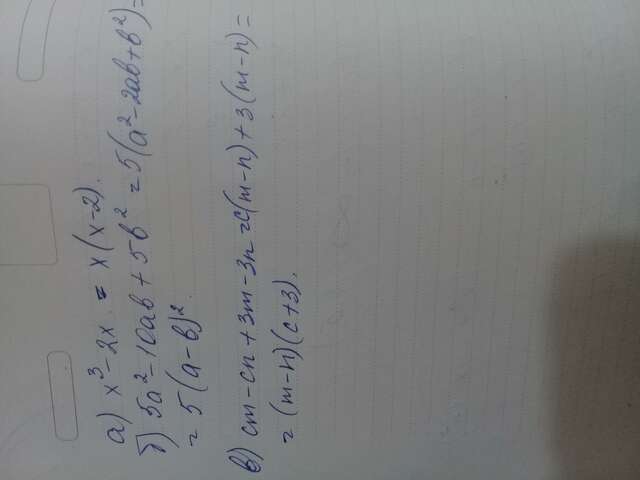 а) x³-2x. = x(x-2).
б) 5a²-10ab+5b² = 5(a²-2ab+b²)=
= 5(a-b)².
в) cm-cn+3m-3n = c(m-n)+3(m-n)=
= (m-n)(c+3).